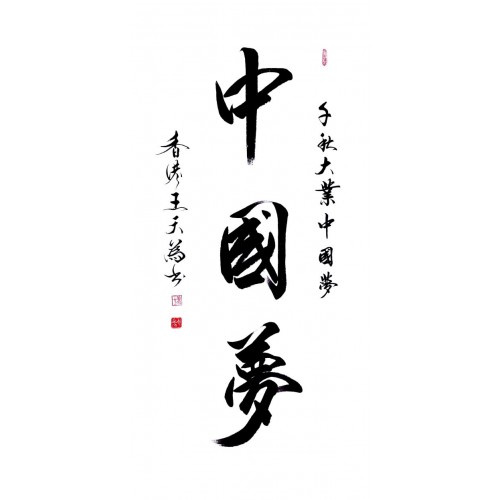 千秋大業中國夢
中國夢
香港王天為書